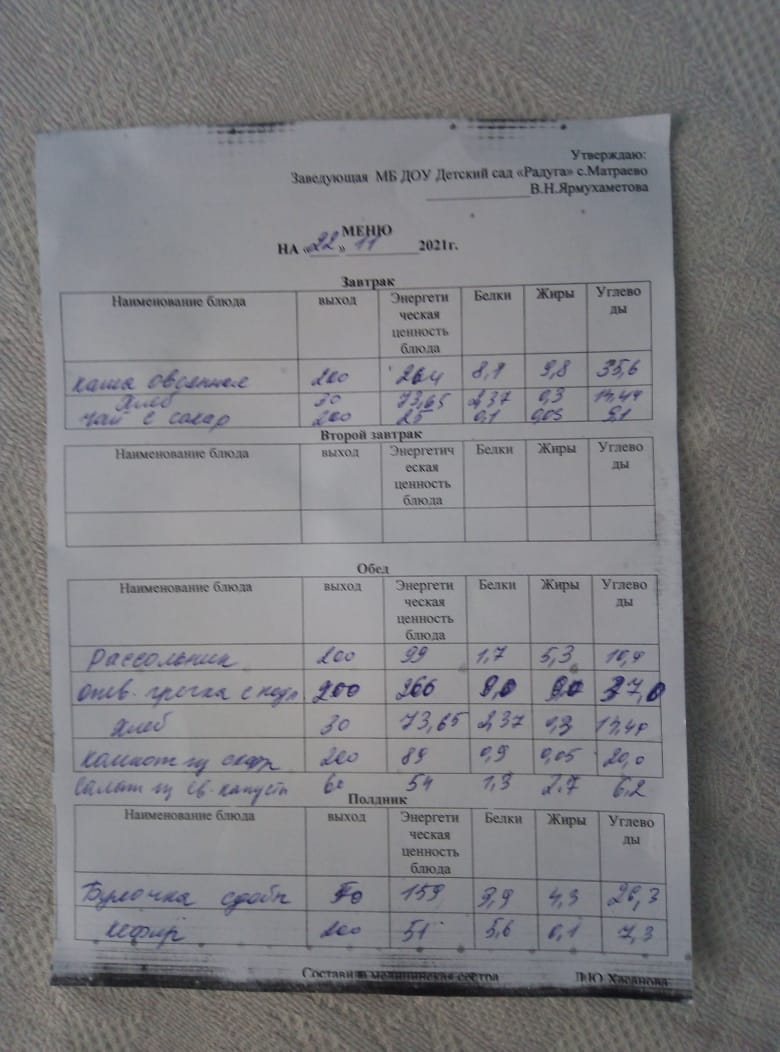 Утверждаю:
Заведующая МБ ДОУ Детский сад «Радуга» с.Матраево
____________В.Н.Ярмухаметова
МЕНЮ
НА «22» 11 2021г.
Завтрак
Наименование блюда выход Энергети ческая ценность блюда Белки Жиры Углево ды
каша овсянная 200 264 8,1 9,8 35,6
хлеб 30 73,65 2,37 0,3 14,49
чай с сахар 200 25 0,1 0,05 9,1
Второй завтрак
Наименование блюда выход Энергетич еская ценность блюда Белки Жиры Углево ды
Обед
Наименование блюда выход Энергети ческая ценность блюда Белки Жиры Углево ды
Рассольник 200 99 1,7 5,3 10,9
отв. гречка с подл 200 266 37,0
хлеб 30 73,65 2,37 0,3 14,49
компот из сухфр 200 89 0,9 0,05 20,0
Салат из св. капусты 60 54 1,3 2.7 6,2
Полдник
Наименование блюда выход Энергети ческая ценность блюда Белки Жиры Углево ды
Булочка сдобн 50 159 3,9 4,3 26,3
кефир 200 51 5,6 0,1 7,3
Составила медицинская сестра Л.Ю Хасанова